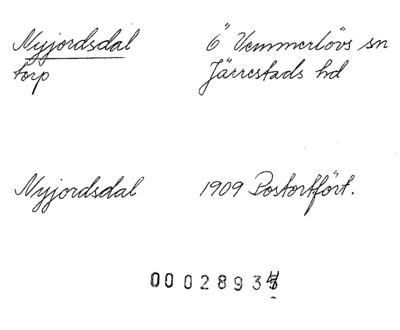 Nyjordsdal 6" Vemmerlövs sn
torp Järrestads hd
Nyjordsdal 1909 Postortfört.
00 02893